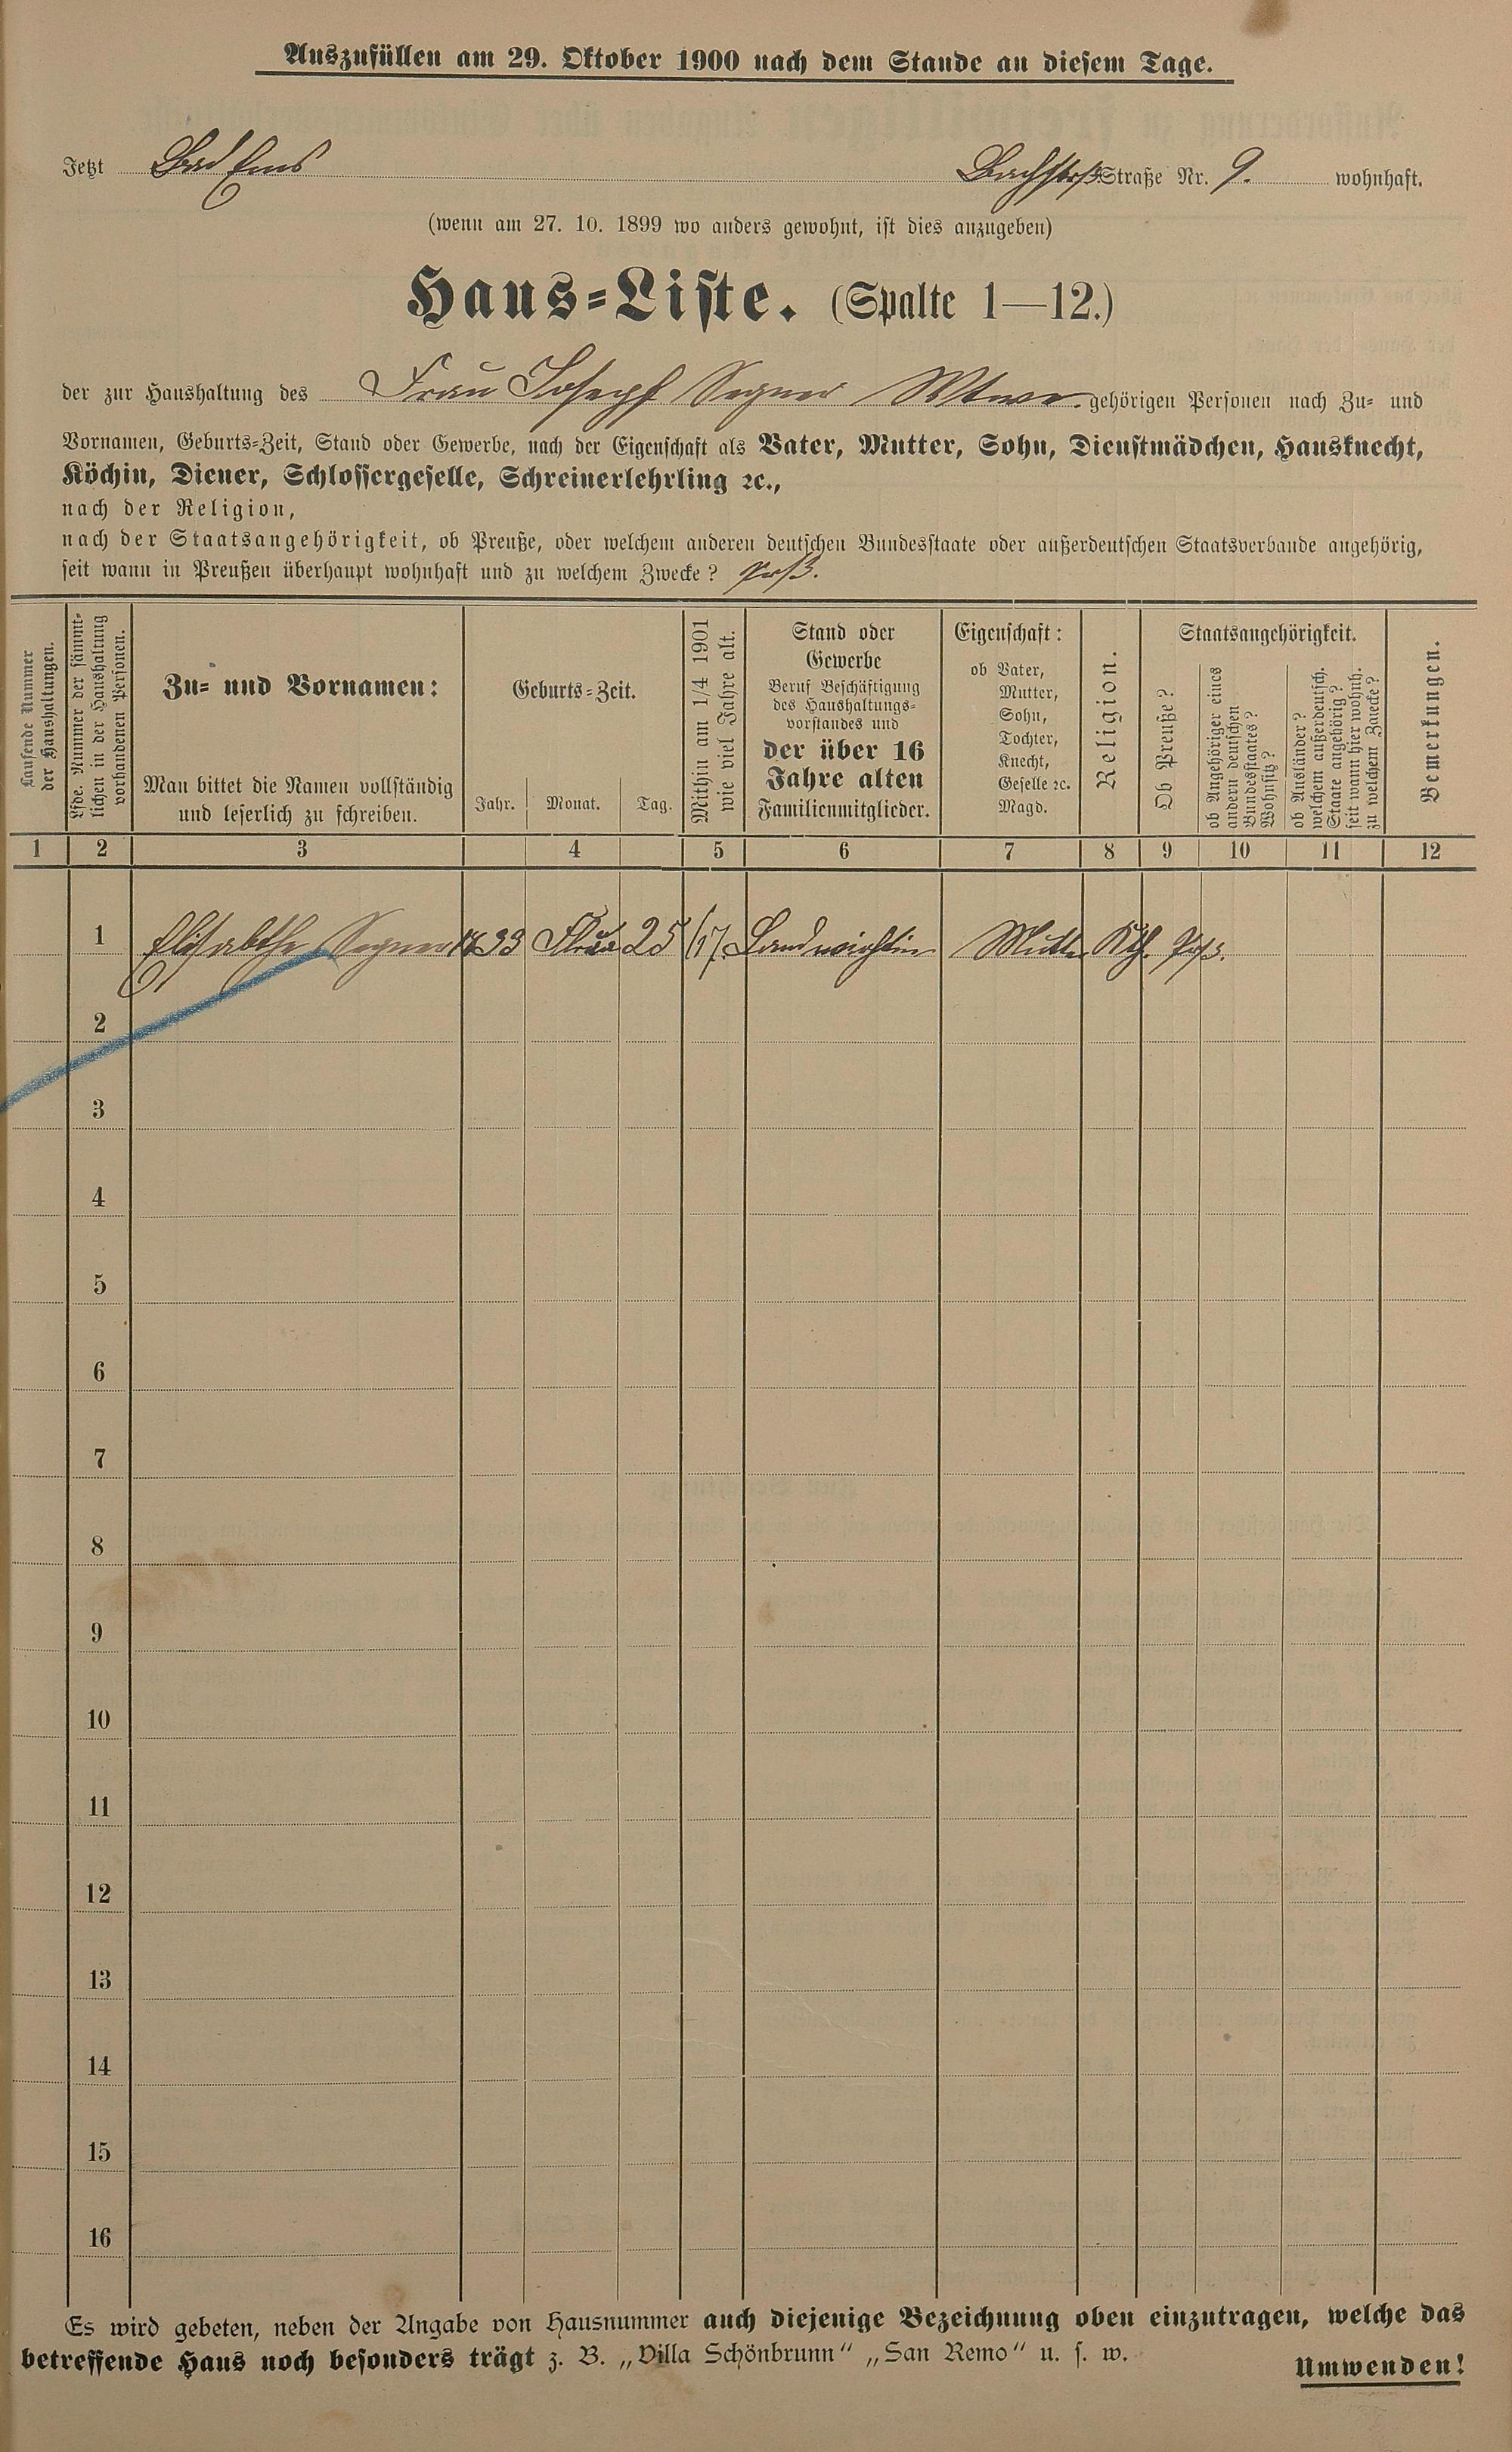 Auszufüllen am 29. Oktober 1900 nach dem Stande an diesem Tage.
Jetzt Bad Ems Bachstrß. Straße Nr. 9. wohnhaft.
(wenn am 27. 10. 1899 wo anders gewohnt, ist dies anzugeben)
Haus-Liste. (Spalte 1—12.)
der zur Haushaltung des Frau Joseph Wtwe. gehörigen Personen nach Zu- und
Vornamen, Geburts-Zeit, Stand oder Gewerbe, nach der Eigenschaft als Vater, Mutter, Sohn, Dienstmädchen, Hausknecht,
Köchin, Diener, Schlossergeselle, Schreinerlehrling ꝛc.,
nach der Religion,
nach der Staatsangehörigkeit, ob Preuße, oder welchem anderen deutschen Bundesstaate oder außerdeutschen Staatsverbande angehörig,
seit wann in Preußen überhaupt wohnhaft und zu welchem Zwecke? Prß.
Laufende Nummer
der Haushaltungen.
Lfde. Nummer der sämmt-
lichen in der Haushaltung
vorhandenen Personen.
Zu- und Vornamen:
Man bittet die Namen vollständig
und leserlich zu schreiben.
Geburts-Zeit.
Jahr. Monat. Tag.
Mithin am 1/4 1901
wie viel Jahre alt.
Stand oder
Gewerbe
Beruf Beschäftigung
des Haushaltungs-
vorstandes und
der über 16
Jahre alten
Familienmitglieder.
Eigenschaft:
ob Vater,
Mutter,
Sohn,
Tochter,
Knecht,
Geselle ꝛc.
Magd.
Religion.
Staatsangehörigkeit.
Ob Preuße?
ob Angehöriger eines
andern deutschen
Bundesstaates?
Wohnsitz?
ob Ausländer?
welchem außerdeutsch.
Staate angehörig?
seit wann hier wohnh.
zu welchem Zwecke?
Bemerkungen.
1 2 3 4 5 6 7 8 9 10 11 12
1 Elisabethe 1833 25 67 Landwirthin Mutter Kth. Prß.
2
3
4
5
6
7
8
9
10
11
12
13
14
15
16
Es wird gebeten, neben der Angabe von Hausnummer auch diejenige Bezeichnung oben einzutragen, welche das
betreffende Haus noch besonders trägt z. B. „Villa Schönbrunn" „San Remo" u. s. w.
Umwenden!